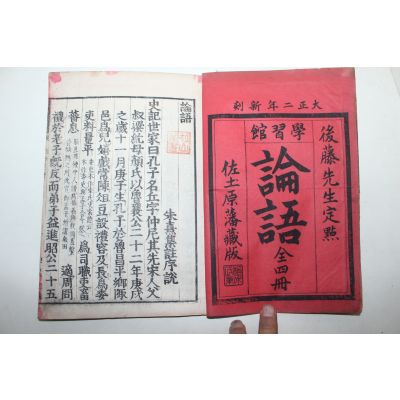 大正二年新刻
後藤先生定點
學習館
論語 全四冊
佐土原藩藏版
論語
朱熹集註序說
史記世家曰孔子名丘字仲尼其先宋人父
叔梁紇母顏氏以魯襄公二十二年庚戌
之歲十一月庚子生孔子於魯昌平鄉陬
邑爲兒嬉戲常陳俎豆設禮容及長爲委
吏料量平
爲司職吏畜
蕃息
適周問
禮於老子既反而弟子益進昭公二十五